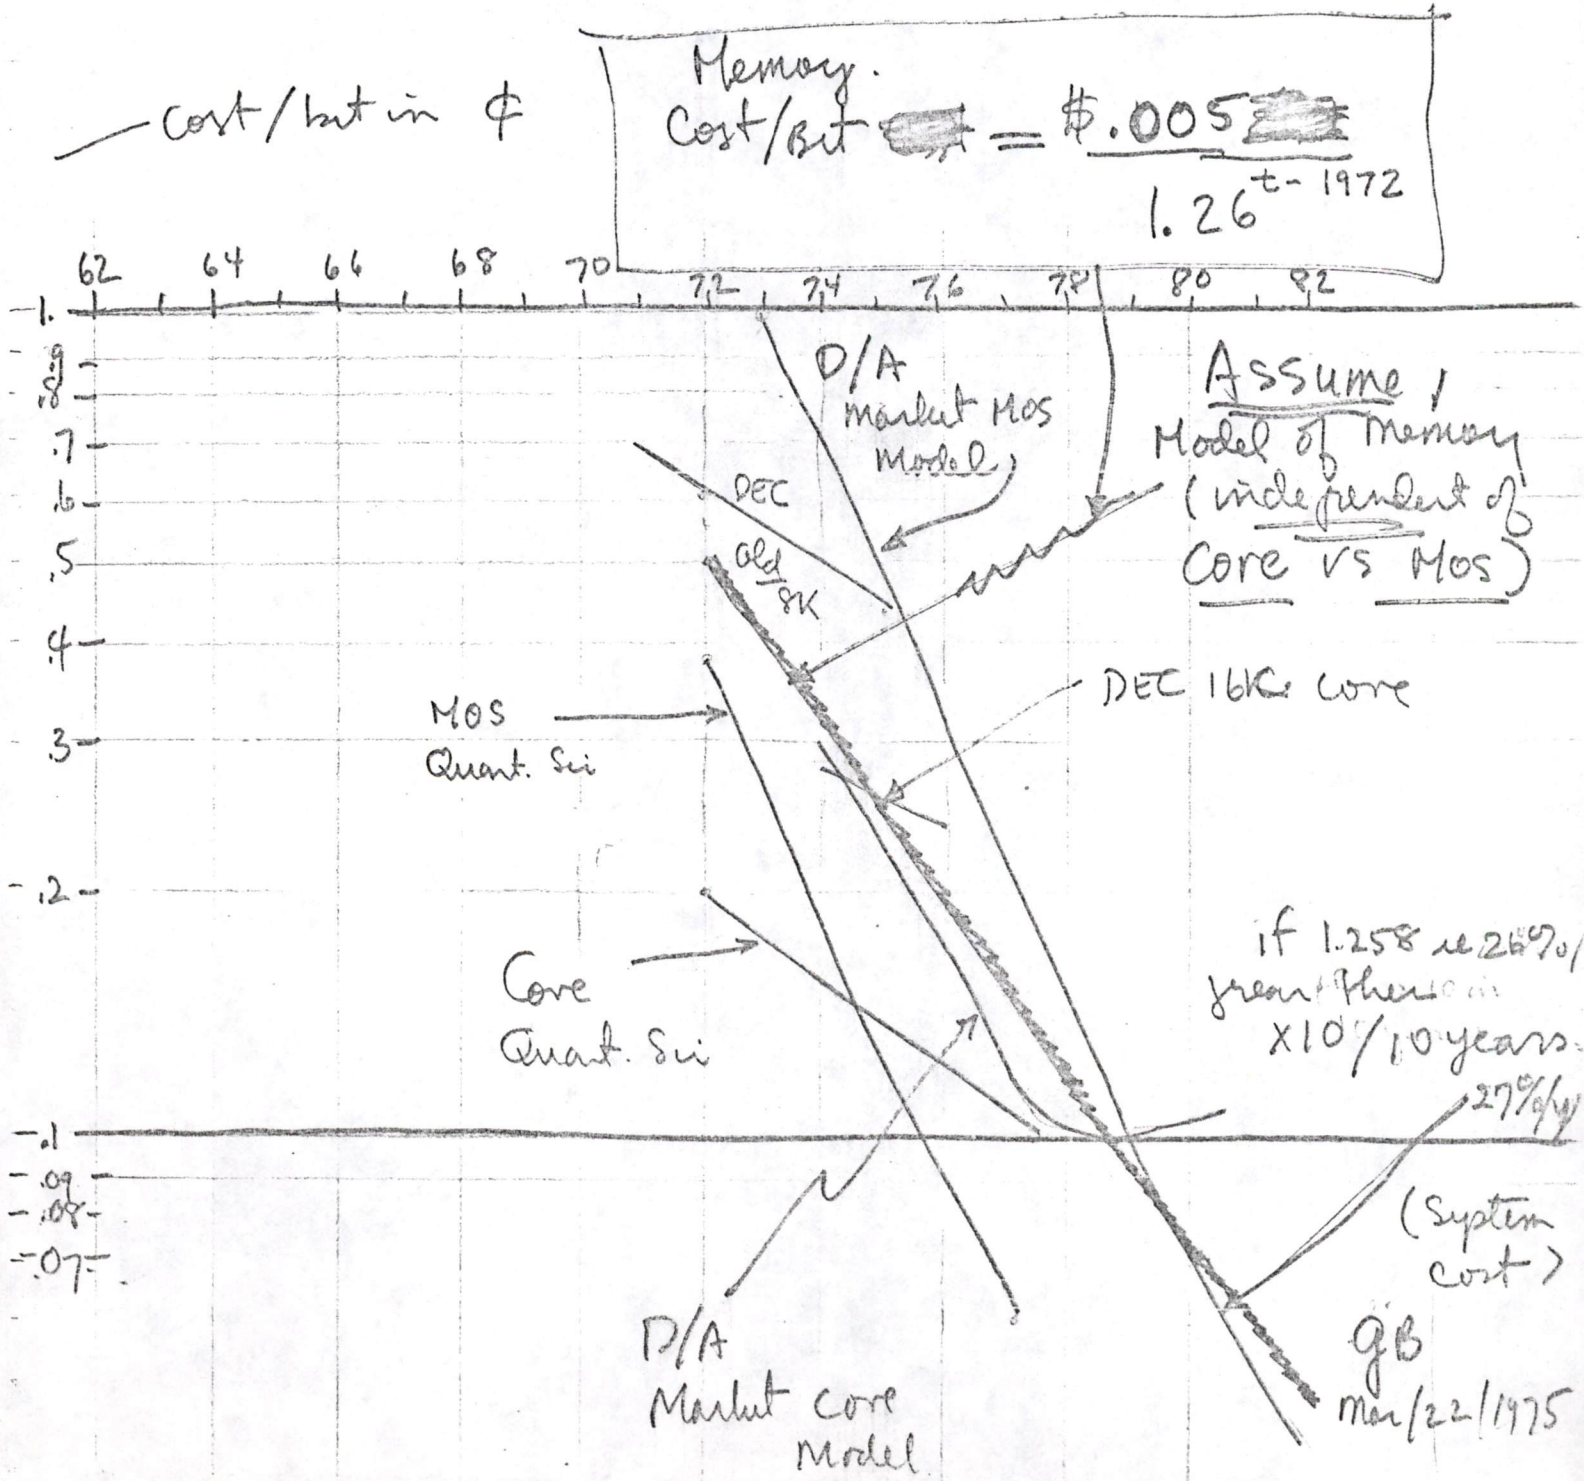 cost/bit in ¢
Memory.
Cost/Bit = $.005
1.26^t-1972
62 64 66 68 70 72 74 76 78 80 82
1.
.9
.8
.7
.6
.5
.4
.3
.2
.1
.09
.08
.07
D/A
market MOS
Model
Assume,
Model of Memory
(independent of
Core vs Mos)
DEC
old
8K
DEC 16K core
MOS
Quant. Sci
Core
Quant. Sci
if 1.258 ie 26%/
year then
x10/10 years.
27%/yr
(System
cost)
D/A
Market Core
Model
GB
Mar/22/1975